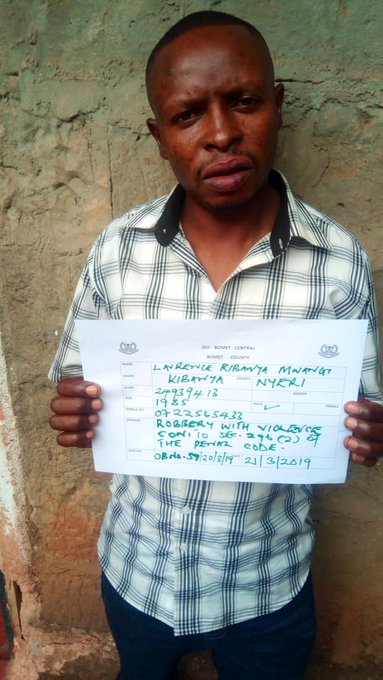 DCI BOMET CENTRAL
BOMET COUNTY
LAWRENCE KIBANYA MWANGI
KIBANYA COUNTY NYERI
24939413
1985
MALE ✓
0722565433
ROBBERY WITH VIOLENCE
CON. TO SEC. 296(2) OF
THE PENAL CODE.
OB NO. 59/20/3/19 21/3/2019